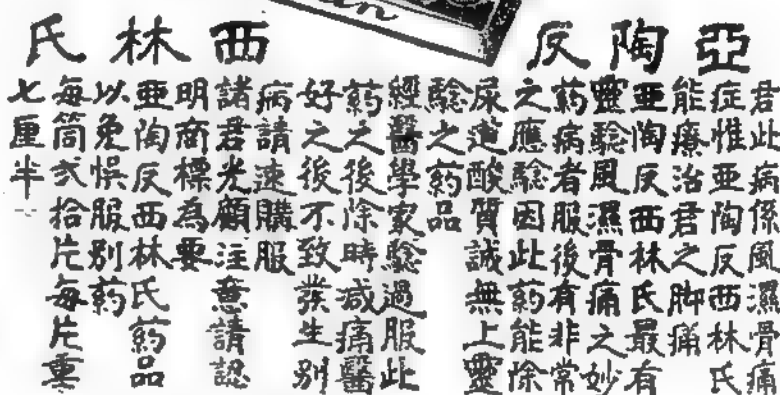 亞陶反
西林氏
君此病係風濕骨痛
症惟亞陶反西林氏
能療治君之脚痛
亞陶反西林氏最有
靈驗風濕骨痛之妙
藥病者服後有非常
之應驗因此藥能除
尿道酸質誠無上靈
驗之藥品
經醫學家驗過服此
藥之後除時减痛醫
好之後不致發生別
病請速購服
諸君光顧注意請認
明商標為要
亞陶反西林氏藥品
以免悞服別藥
每筒弍拾片每片重
七厘半